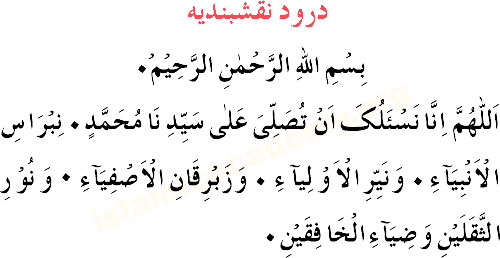 درود نقشبندیه
بِسْمِ اللهِ الرَّحْمٰنِ الرَّحِيْمِ۰
اَللّٰهُمَّ اِنَّا نَسْئَلُکَ اَنْ تُصَلِّیَ عَلٰی سَيِّدِ نَا مُحَمَّدٍ۰ نِبْرَاسِ
الْاَنْبِيَآءِ۰ وَ نَيِّرِ الْاَوْ لِيَآ ءِ۰ وَ زَبْرِقَانِ الْاَصْفِيَآءِ ۰ وَ نُوْرِ
الثَّقَلَيْنِ وَ ضِيَآءِ الْخَا فِقَيْنِ۰